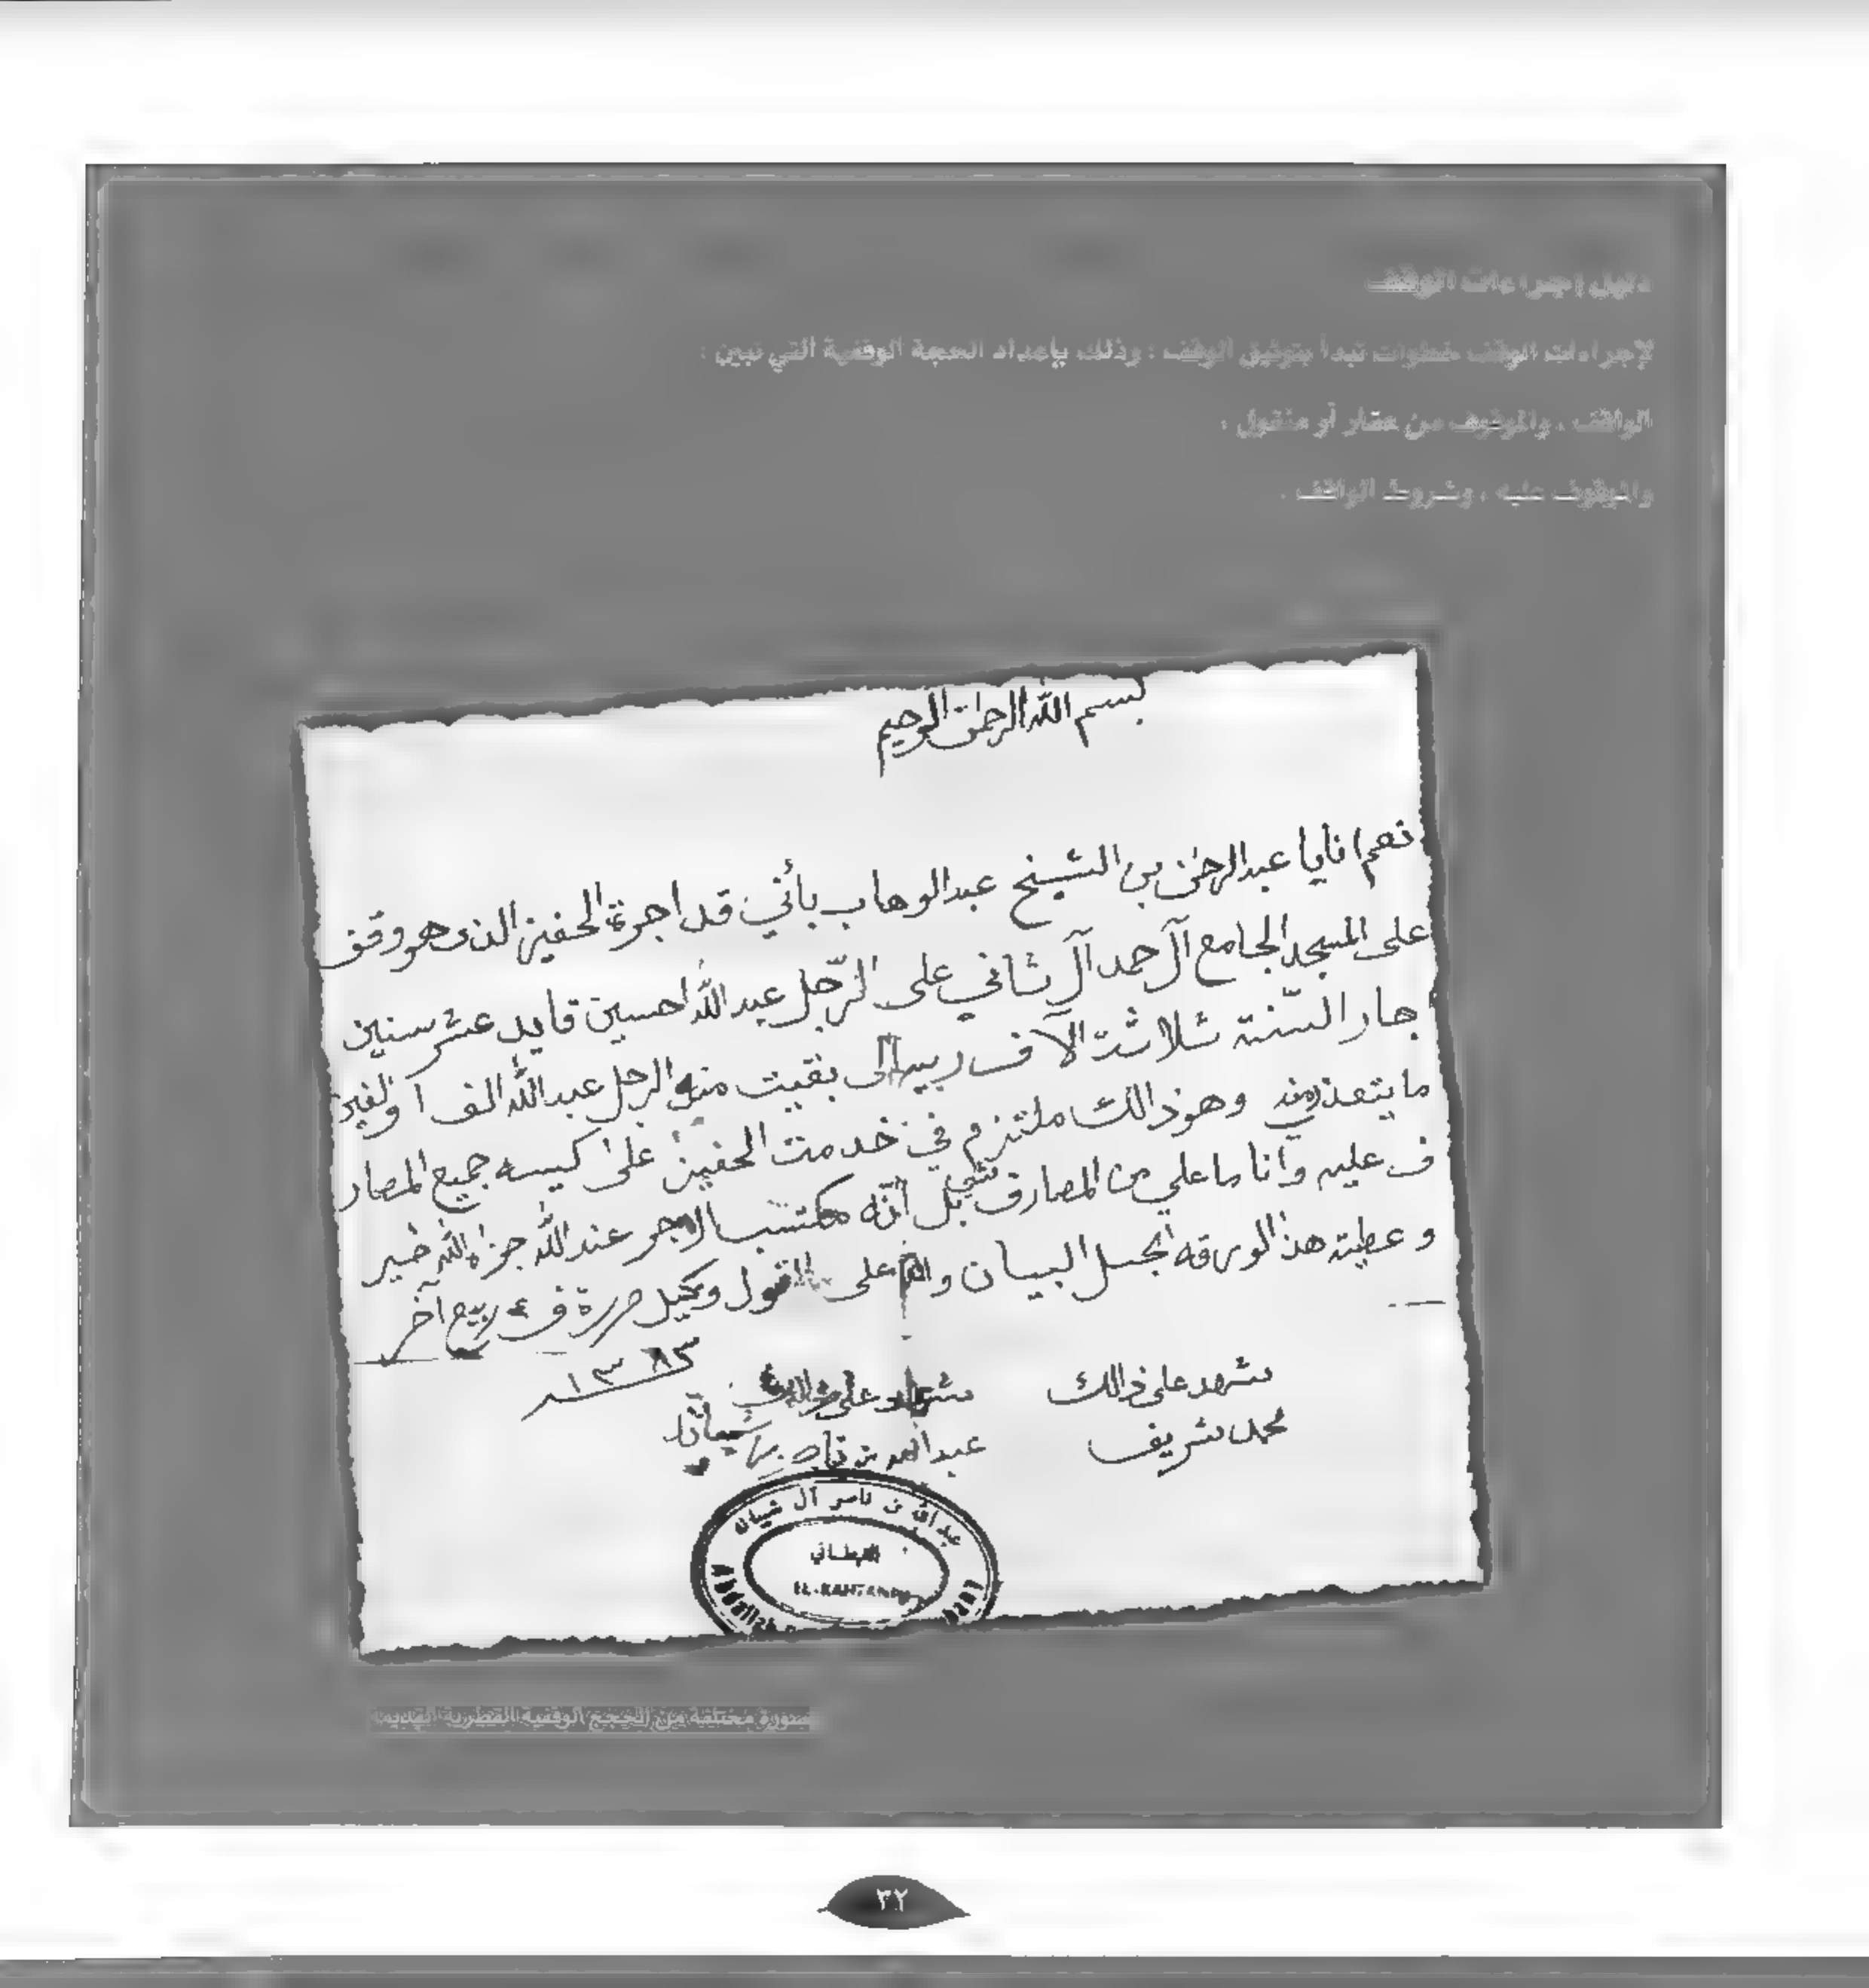 دليل إجراءات الوقف
لإجراءات الوقف خطوات تبدأ بتوثيق الوقف : وذلك بإعداد الحجة الوقفية التي تبين :
الواقف ، والموقوف من عقار أو منقول ،
والموقوف عليه ، وشروط الواقف .
بسم الله الرحمن الرحيم
نعم انا يا عبد الرحمن بن الشيخ عبد الوهاب بأني قد اجرة الحفيز الذى هو وقف
على المسجد الجامع آل حمد آل ثاني على الرّجل عبد الله احسين قايد عشر سنين
جار السّنة ثلاثة الآف ربيه بقيت منه الرجل عبد الله الف ا والغير
ما يتعذر منه وهو ذالك ملتزم في خدمت الحفيز على كيسه جميع المصار
ف عليه وأنا ما علي من المصارف شي بل أنّه مكتسب الاجر عند الله جزاه الله خير
و عطيته هذ الورقه الجل البيان والله على القول وكيل حررة ف ٤ ربيع آخر
١٣٨٣
نشهد على ذالك
محمد شريف
نشهد على ذالك
عبد الله بن ناصر
عبد الله بن ناصر آل شيبان
القحطاني
EL-KAHTANI
Abdallah
صورة مختلفة من الحجج الوقفية القطرية القديمة
٣٢